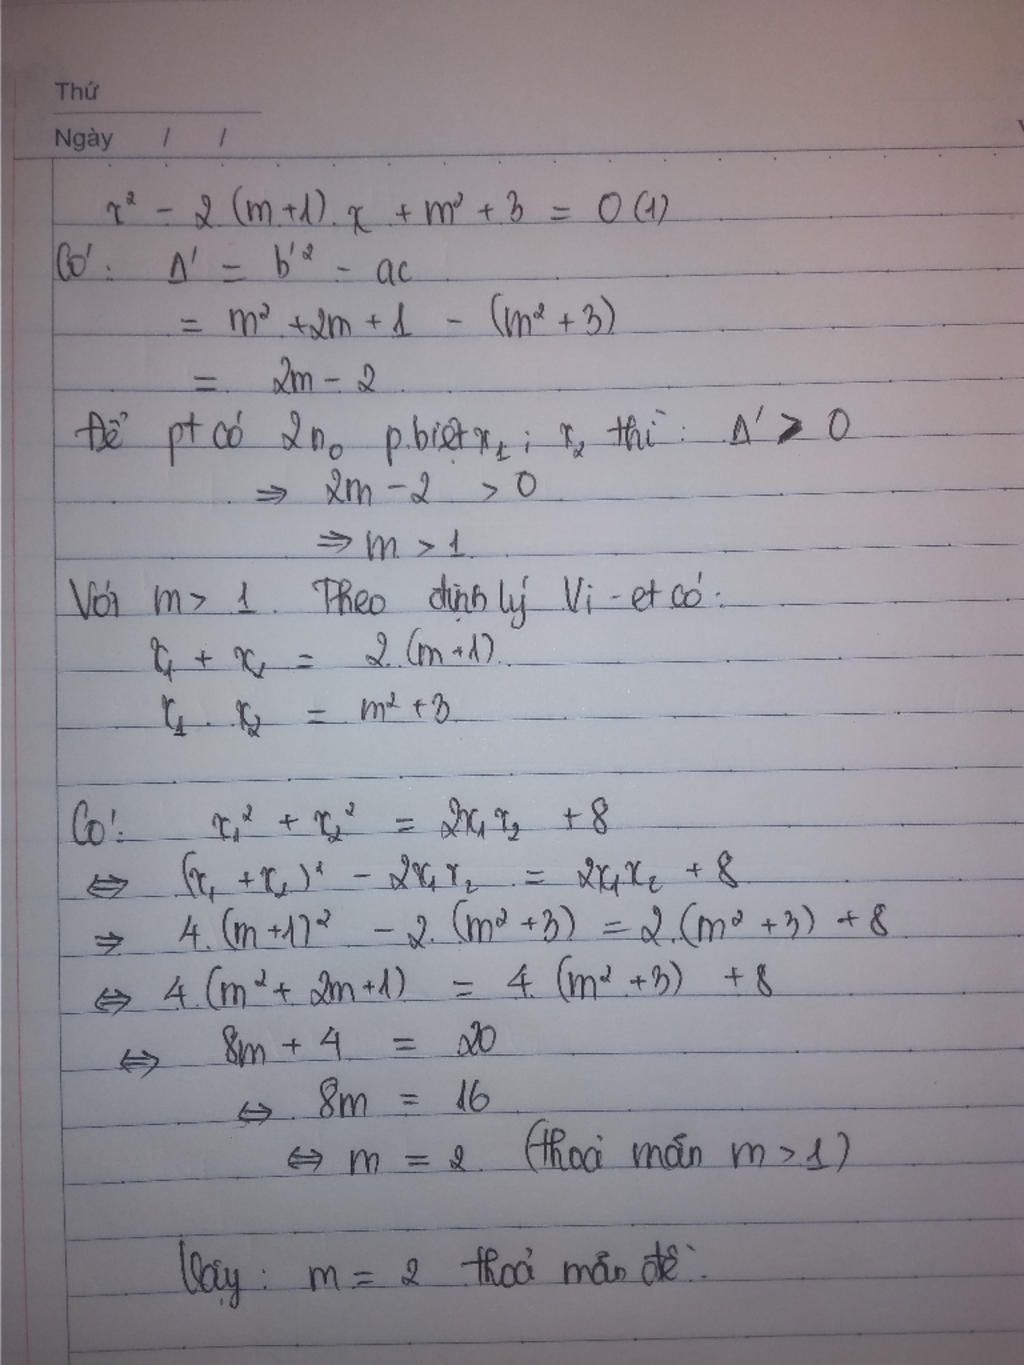 Thứ
Ngày / /
x² - 2(m+1).x + m² + 3 = 0 (1)
Có: Δ' = b'² - ac
= m² + 2m + 1 - (m² + 3)
= 2m - 2
Để pt có 2 n₀ p.biệt x₁; x₂ thì: Δ' > 0
⇒ 2m - 2 > 0
⇒ m > 1
Với m > 1. Theo định lý Vi-et có:
x₁ + x₂ = 2.(m+1)
x₁ . x₂ = m² + 3
Có: x₁² + x₂² = 2x₁x₂ + 8
⇔ (x₁ + x₂)² - 2x₁x₂ = 2x₁x₂ + 8
⇒ 4.(m+1)² - 2.(m² + 3) = 2.(m² + 3) + 8
⇔ 4.(m² + 2m + 1) = 4.(m² + 3) + 8
⇔ 8m + 4 = 20
⇔ 8m = 16
⇔ m = 2 (thoả mãn m > 1)
Vậy: m = 2 thoả mãn đề.